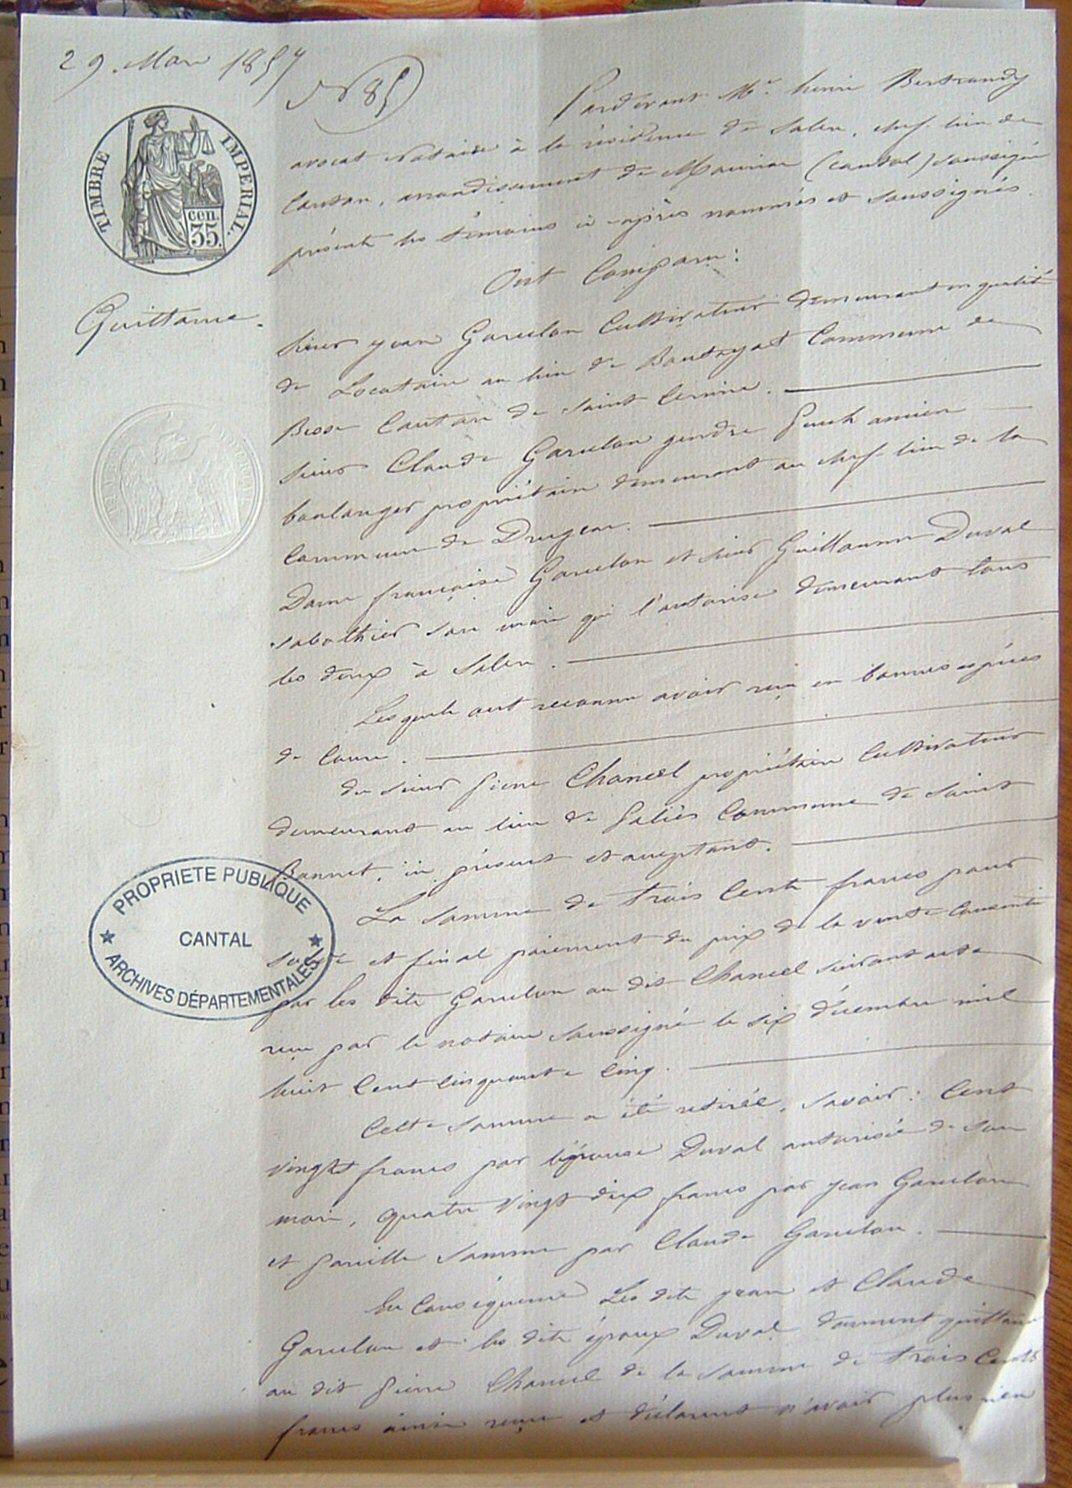 29. Mars 1857
N° 85
TIMBRE IMPERIAL.
cen. 35.
Quittance.
Pardevant Me henri Bertrandy
avocat Notaire à la résidence de Salers, chef lieu de
Canton, arrondissement de Mauriac (cantal) soussigné
présents les témoins ci-après nommés et soussignés.
Ont Comparu:
Sieur jean Garcelon Cultivateur demeurant en qualité
de Locataire au lieu de Commune de
Besse Canton de Saint Cernin.
Sieur Claude Garcelon gendre Puech ancien
boulanger propriétaire demeurant au chef lieu de la
Commune de Drugeac.
Dame françoise Garcelon et sieur Guillaume Duval
sabothier son mari qui l'autorise demeurant tous
les deux à Salers.
Lesquels ont reconnu avoir reçu en bonnes espèces
de Cours.
du sieur Pierre Chancel propriétaire Cultivateur
demeurant au lieu de Commune de Saint
Bonnet, ici présent et acceptant.
La Somme de Trois Cents francs pour
solde et final paiement du prix de la vente Consentie
par les dits Garcelon au dit Chancel suivant acte
reçu par le notaire soussigné le six décembre mil
huit Cent Cinquante Cinq.
Cette somme a été retirée, savoir: Cent
vingt francs par l'épouse Duval autorisée de son
mari, quatre vingt dix francs par jean Garcelon
et pareille somme par Claude Garcelon.
En Conséquence Les dits jean et Claude
Garcelon et les dits époux Duval donnent quittance
au dit Pierre Chancel de la somme de trois Cents
francs ainsi reçue et déclarent n'avoir plus rien
PROPRIETE PUBLIQUE
CANTAL
ARCHIVES DÉPARTEMENTALES